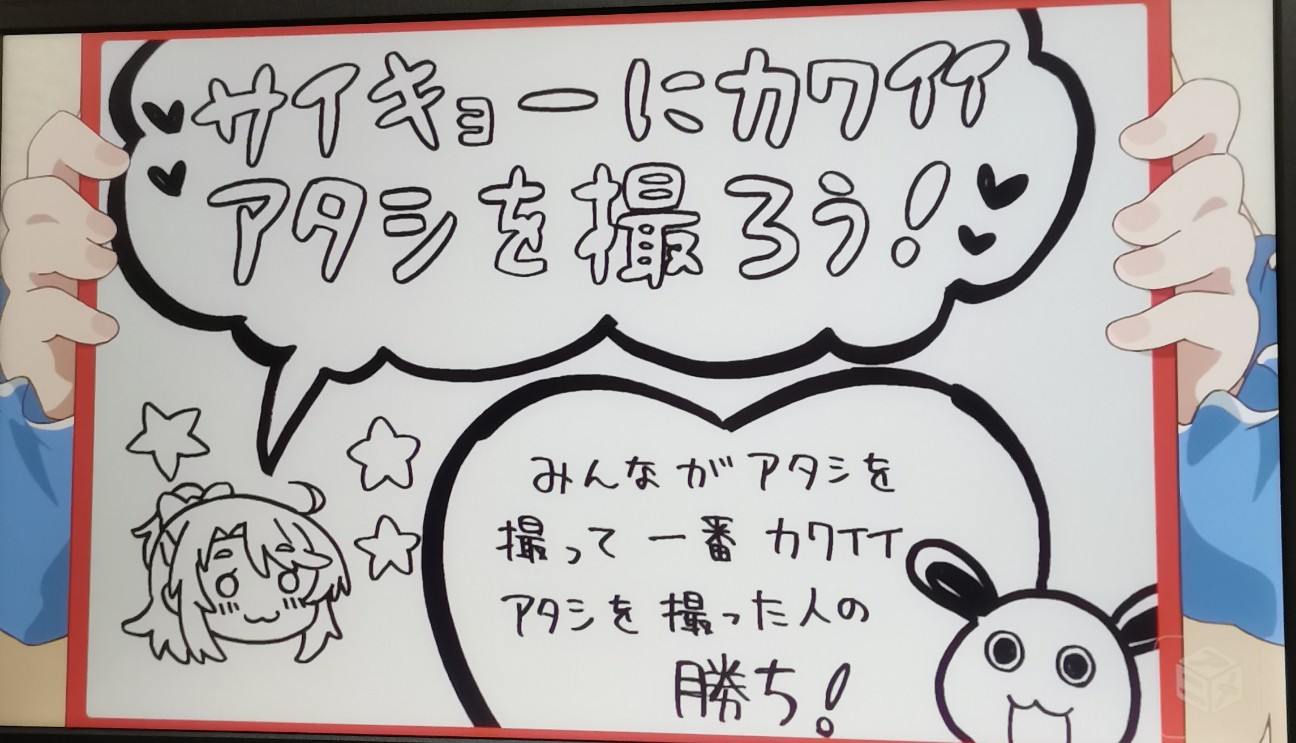 サイキョーにカワイイ
アタシを撮ろう!
みんながアタシを
撮って一番カワイイ
アタシを撮った人の
勝ち!